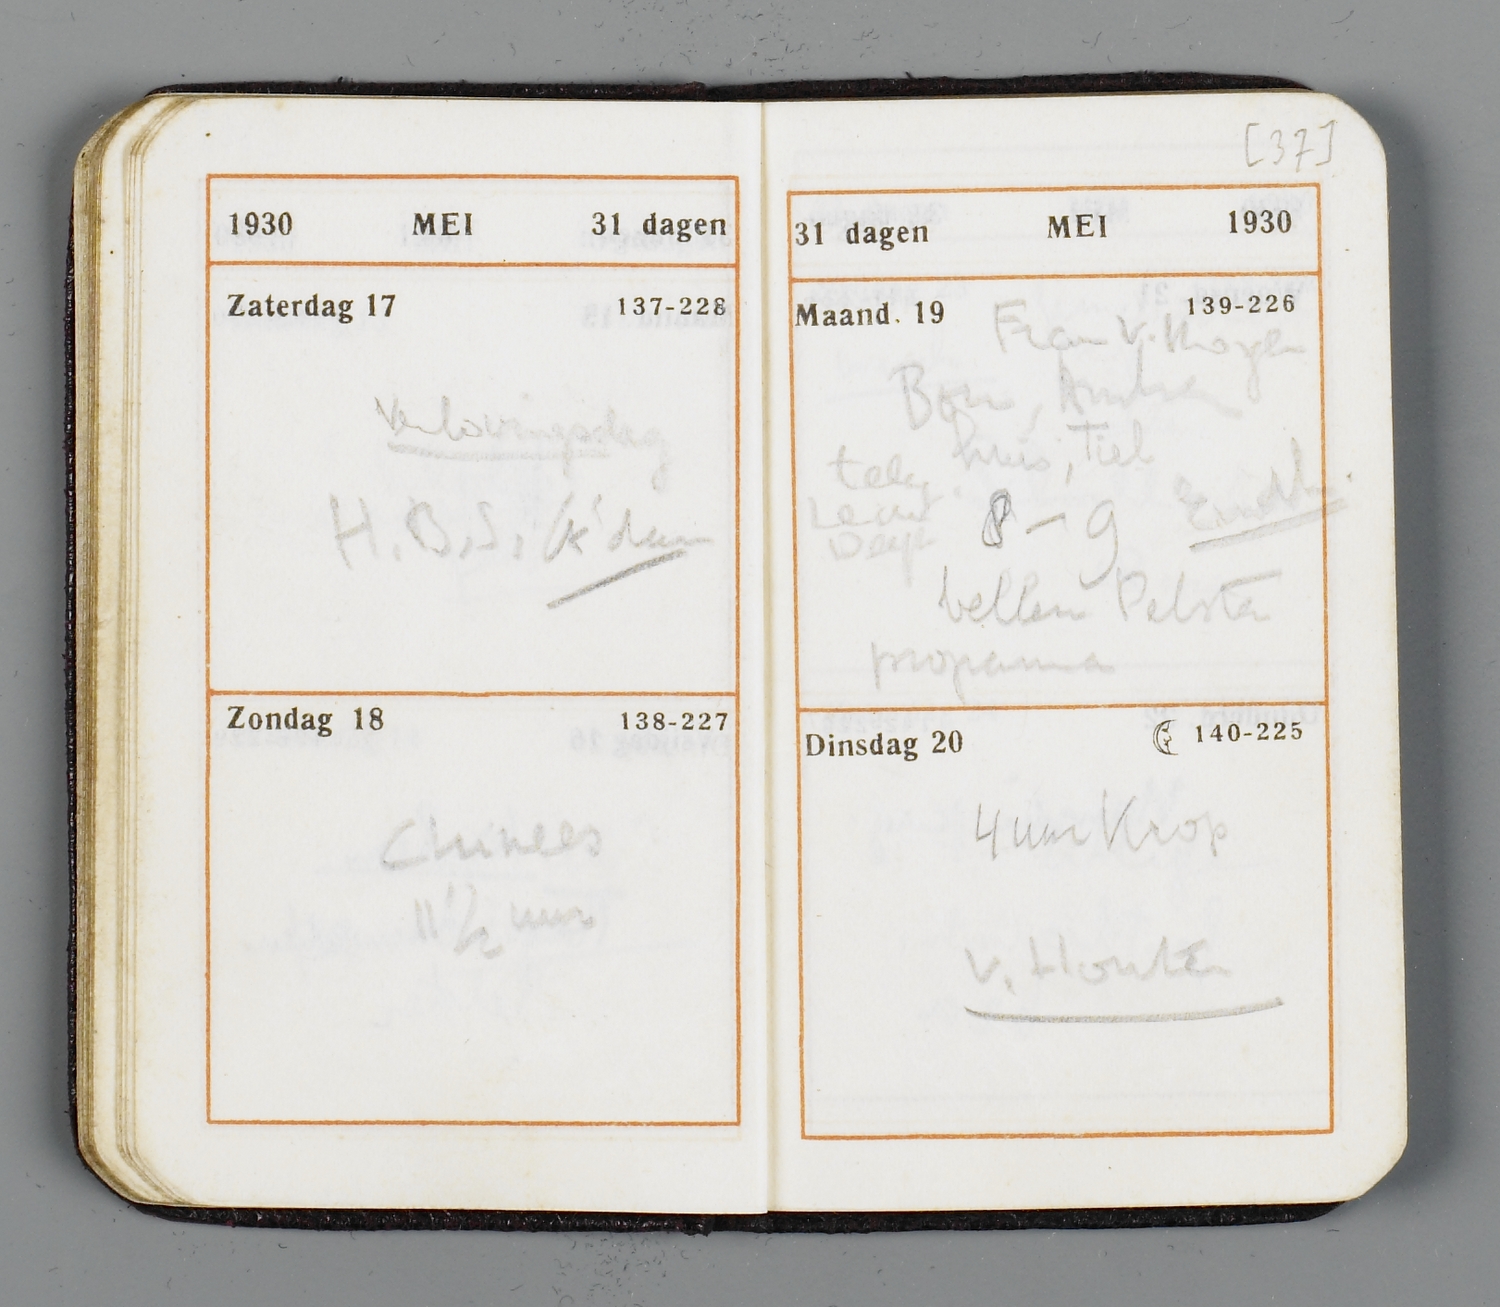 1930 MEI 31 dagen
Zaterdag 17 137-228
Verlovingsdag
H.B.S. A'dam
Zondag 18 138-227
Chinees
11 1/2 uur
[37]
31 dagen MEI 1930
Maand. 19 139-226
Frau v.
Bon,
huis, Tiel
telef.
8-9 Eindh.
bellen Pelster
Dinsdag 20 140-225
4 uur Krop
v. Houten